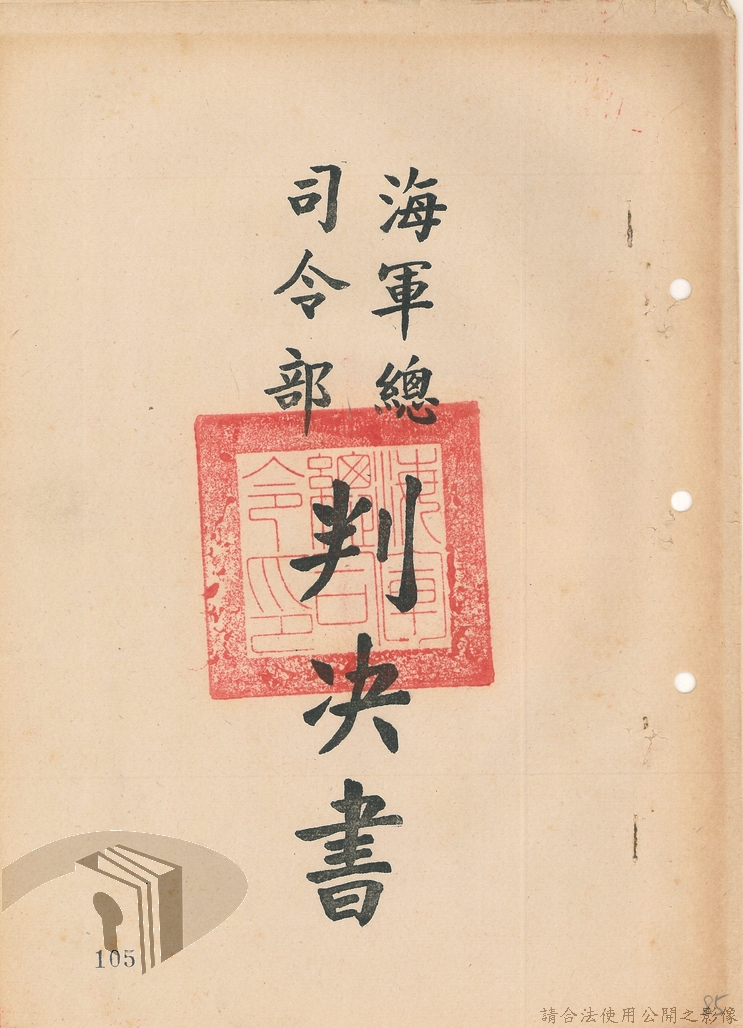 海軍總
司令部
判決書
海軍總司令印
105
85
請合法使用公開之影像